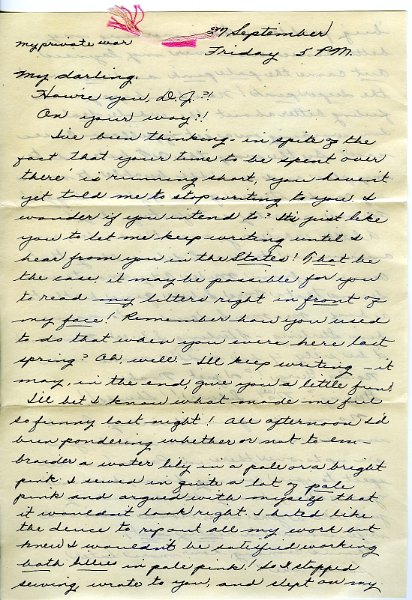 27 September
my private war
Friday 5 P.M.
My darling,
How're you, D.J.?!
On your way?!
I've been thinking - in spite of the
fact that your time to be spent "over
there" is running short, you haven't
yet told me to stop writing to you. I
wonder if you intend to? It's just like
you to let me keep writing until I
hear from you in the States! That be
the case, it may be possible for you
to read my letters right in front of
my face! Remember how you used
to do that when you were here last
spring? Oh, well - I'll keep writing - it
may, in the end, give you a little fun!
I'll bet I know what made me feel
so funny last night! All afternoon I'd
been pondering whether or not to em-
braider a water lily in a pale or a bright
pink. I sewed in quite a lot of pale
pink and argued with myself that
it wouldn't look right. I hated like
the deuce to rip out all my work but
knew I wouldn't be satisfied working
both lilies in pale pink! So I stopped
sewing, wrote to you, and slept on my